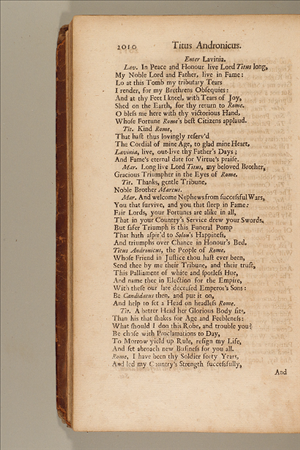 2010 Titus Andronicus.
Enter Lavinia.
Lav. In Peace and Honour live Lord Titus long,
My Noble Lord and Father, live in Fame:
Lo at this Tomb my tributary Tears
I render, for my Brethrens Obsequies:
And at thy Feet I kneel, with Tears of Joy,
Shed on the Earth, for thy return to Rome.
O bless me here with thy victorious Hand,
Whose Fortune Rome's best Citizens applaud.
Tit. Kind Rome,
That hast thus lovingly reserv'd
The Cordial of mine Age, to glad mine Heart.
Lavinia, live, out-live thy Father's Days;
And Fame's eternal date for Virtue's praise.
Mar. Long live Lord Titus, my beloved Brother,
Gracious Triumpher in the Eyes of Rome.
Tit. Thanks, gentle Tribune,
Noble Brother Marcus.
Mar. And welcome Nephews from successful Wars,
You that survive, and you that sleep in Fame:
Fair Lords, your Fortunes are alike in all,
That in your Country's Service drew your Swords.
But safer Triumph is this Funeral Pomp
That hath aspir'd to Solon's Happiness,
And triumphs over Chance in Honour's Bed.
Titus Andronicus, the People of Rome,
Whose Friend in Justice thou hast ever been,
Send thee by me their Tribune, and their trust,
This Palliament of white and spotless Hue,
And name thee in Election for the Empire,
With these our late deceased Emperor's Sons:
Be Candidatus then, and put it on,
And help to set a Head on headless Rome.
Tit. A better Head her Glorious Body fits,
Than his that shakes for Age and Feebleness:
What should I don this Robe, and trouble you?
Be chose with Proclamations to Day,
To Morrow yield up Rule, resign my Life,
And set abroach new Business for you all.
Rome, I have thy Soldier forty Years,
And led my Country's Strength successfully,
And